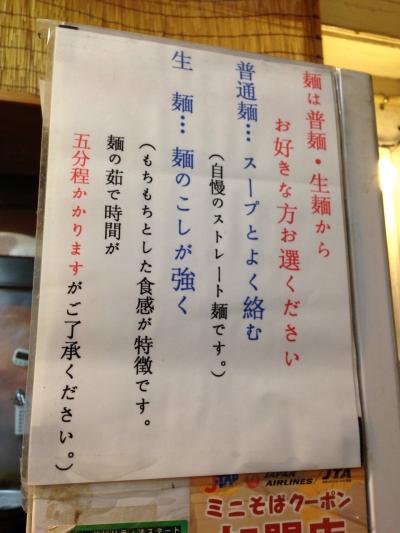 麺は普麺・生麺から
お好きな方お選ください
普通麺… スープとよく絡む
(自慢のストレート麺です。)
生 麺… 麺のこしが強く
(もちもちとした食感が特徴です。
麺の茹で時間が
五分程かかりますがご了承ください。)
JAPAN AIRLINES
JTA
ミニそばクーポン